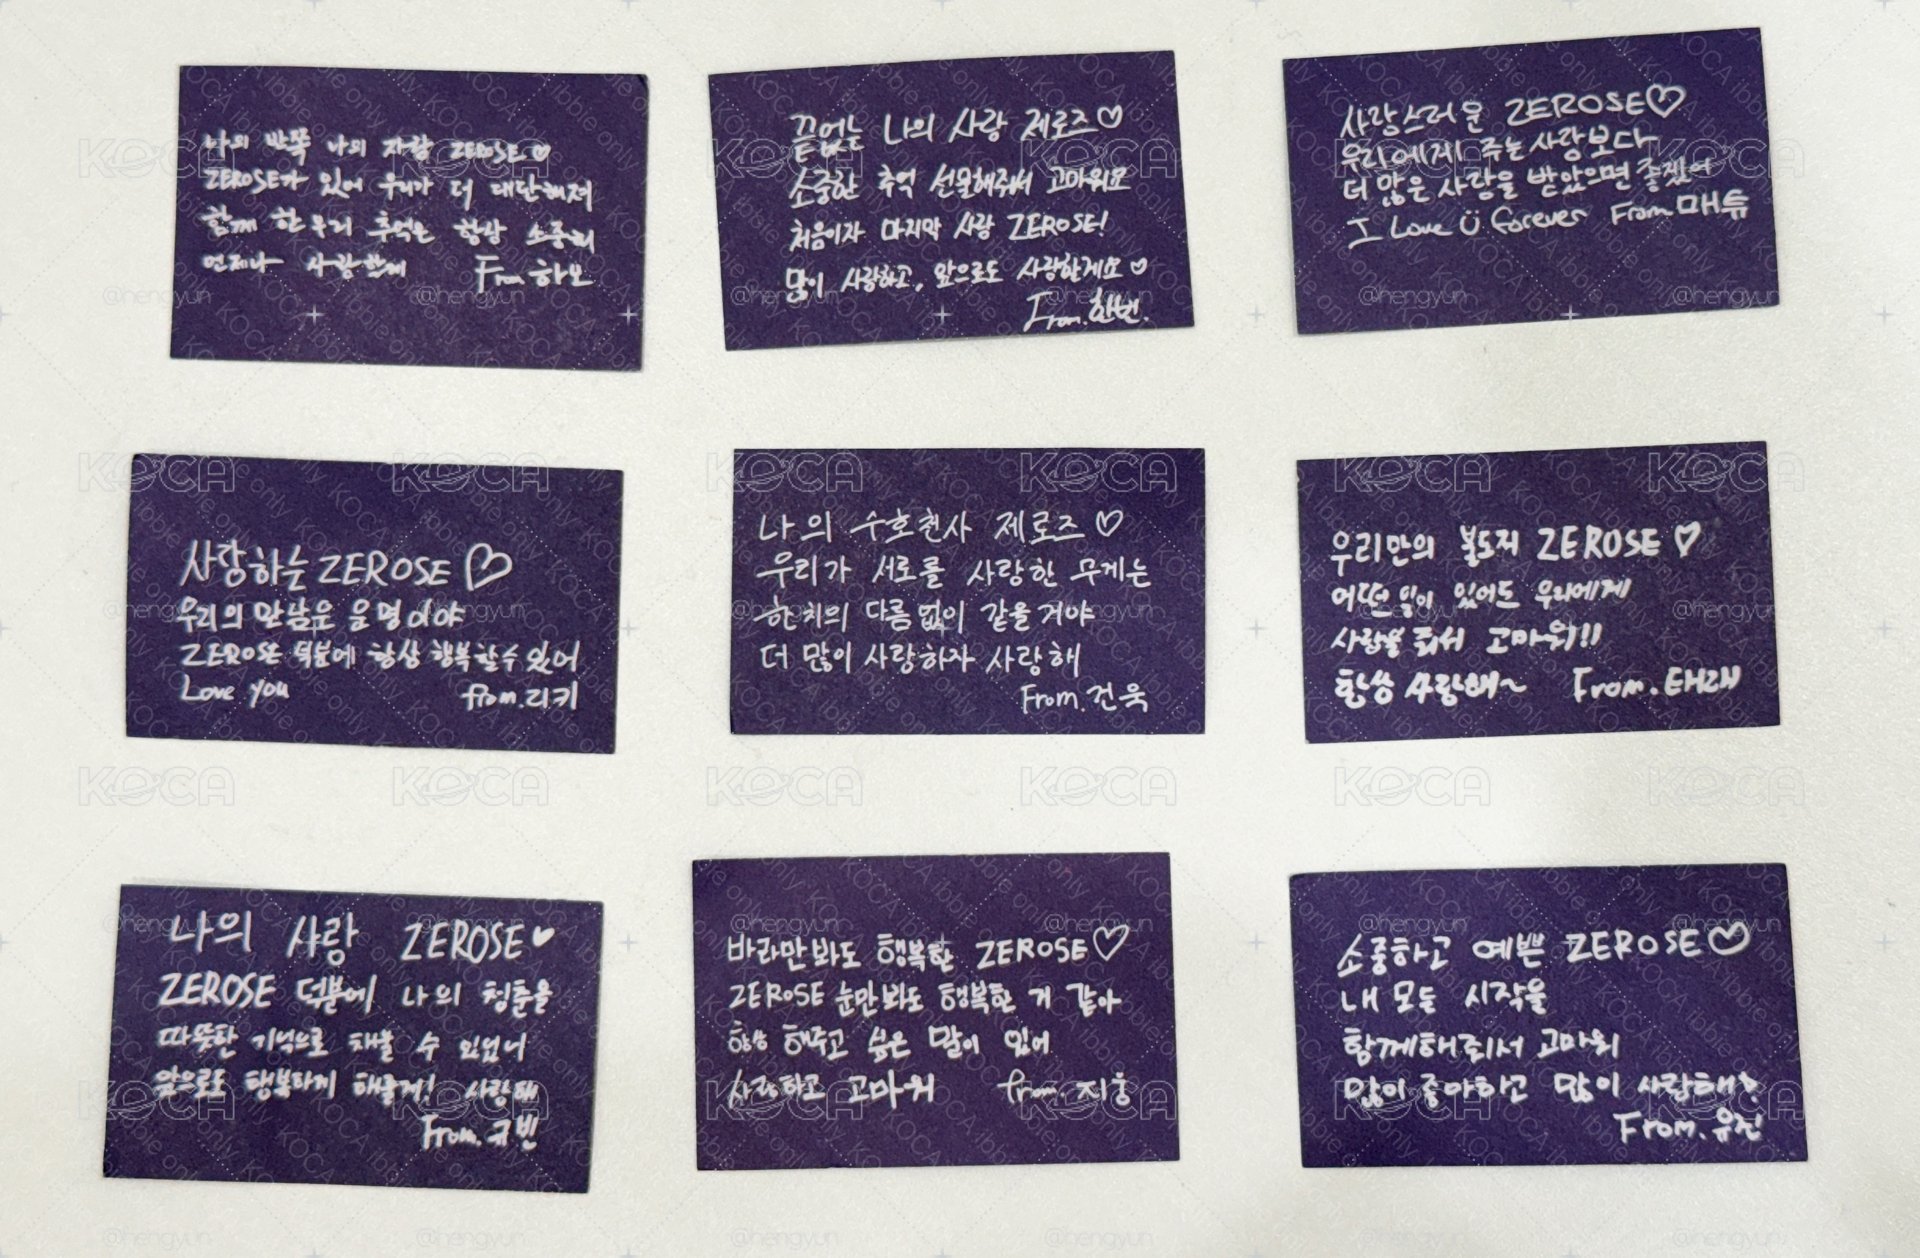 나의 반쪽 나의 자랑 ZEROSE♡
ZEROSE가 있어 우리가 더 대단해져
함께 한 우리 추억은 항상 소중히
언제나 사랑할게 From 하오
끝없는 나의 사랑 제로즈♡
소중한 추억 선물해줘서 고마워요
처음이자 마지막 사랑 ZEROSE!
많이 사랑하고, 앞으로도 사랑할게요♡
From. 한빈.
사랑스러운 ZEROSE♡
우리에게 주는 사랑보다
더 많은 사랑을 받았으면 좋겠어
I Love U forever From 매튜
사랑하는 ZEROSE♡
우리의 만남은 운명이야
ZEROSE 덕분에 항상 행복할수 있어
Love you from. 리키
나의 수호천사 제로즈♡
우리가 서로를 사랑한 무게는
한치의 다름없이 같을거야
더 많이 사랑하자 사랑해
From. 건욱
우리만의 불도저 ZEROSE♡
어떤 일이 있어도 우리에게
사랑을 줘서 고마워!!
항상 사랑해~ From. 태래
나의 사랑 ZEROSE♥
ZEROSE 덕분에 나의 청춘을
따뜻한 기억으로 채울 수 있었너
앞으로도 행복하게 해줄게! 사랑해
From. 규빈
바라만봐도 행복한 ZEROSE♡
ZEROSE 눈만봐도 행복한 거 같아
항상 해주고 싶은 말이 있어
사랑하고 고마워 from. 지웅
소중하고 예쁜 ZEROSE♡
내 모든 시작을
함께해줘서 고마워
많이 좋아하고 많이 사랑해?
From. 유진
KOCA
@hengyun
KOCA ibbie only